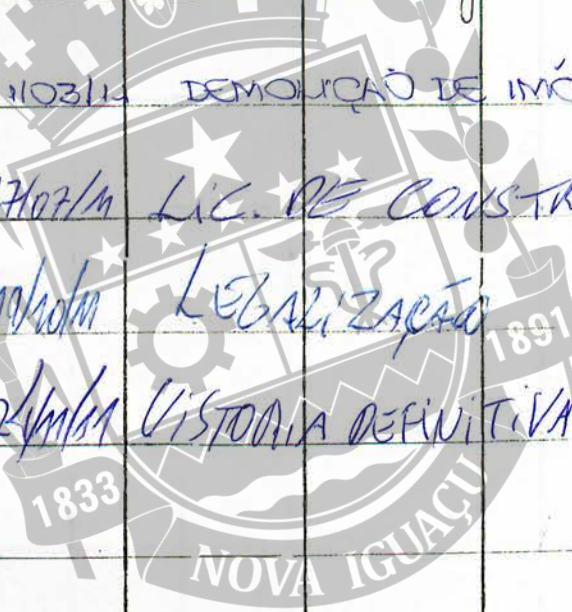 1/03/11 DEMOLIÇÃO DE IMÓ
7/07/11 LIC. DE CONSTR
/10/11 LEGALIZAÇÃO
/11/11 VISTORIA DEFINITIVA
1891
1833
NOVA IGUAÇU